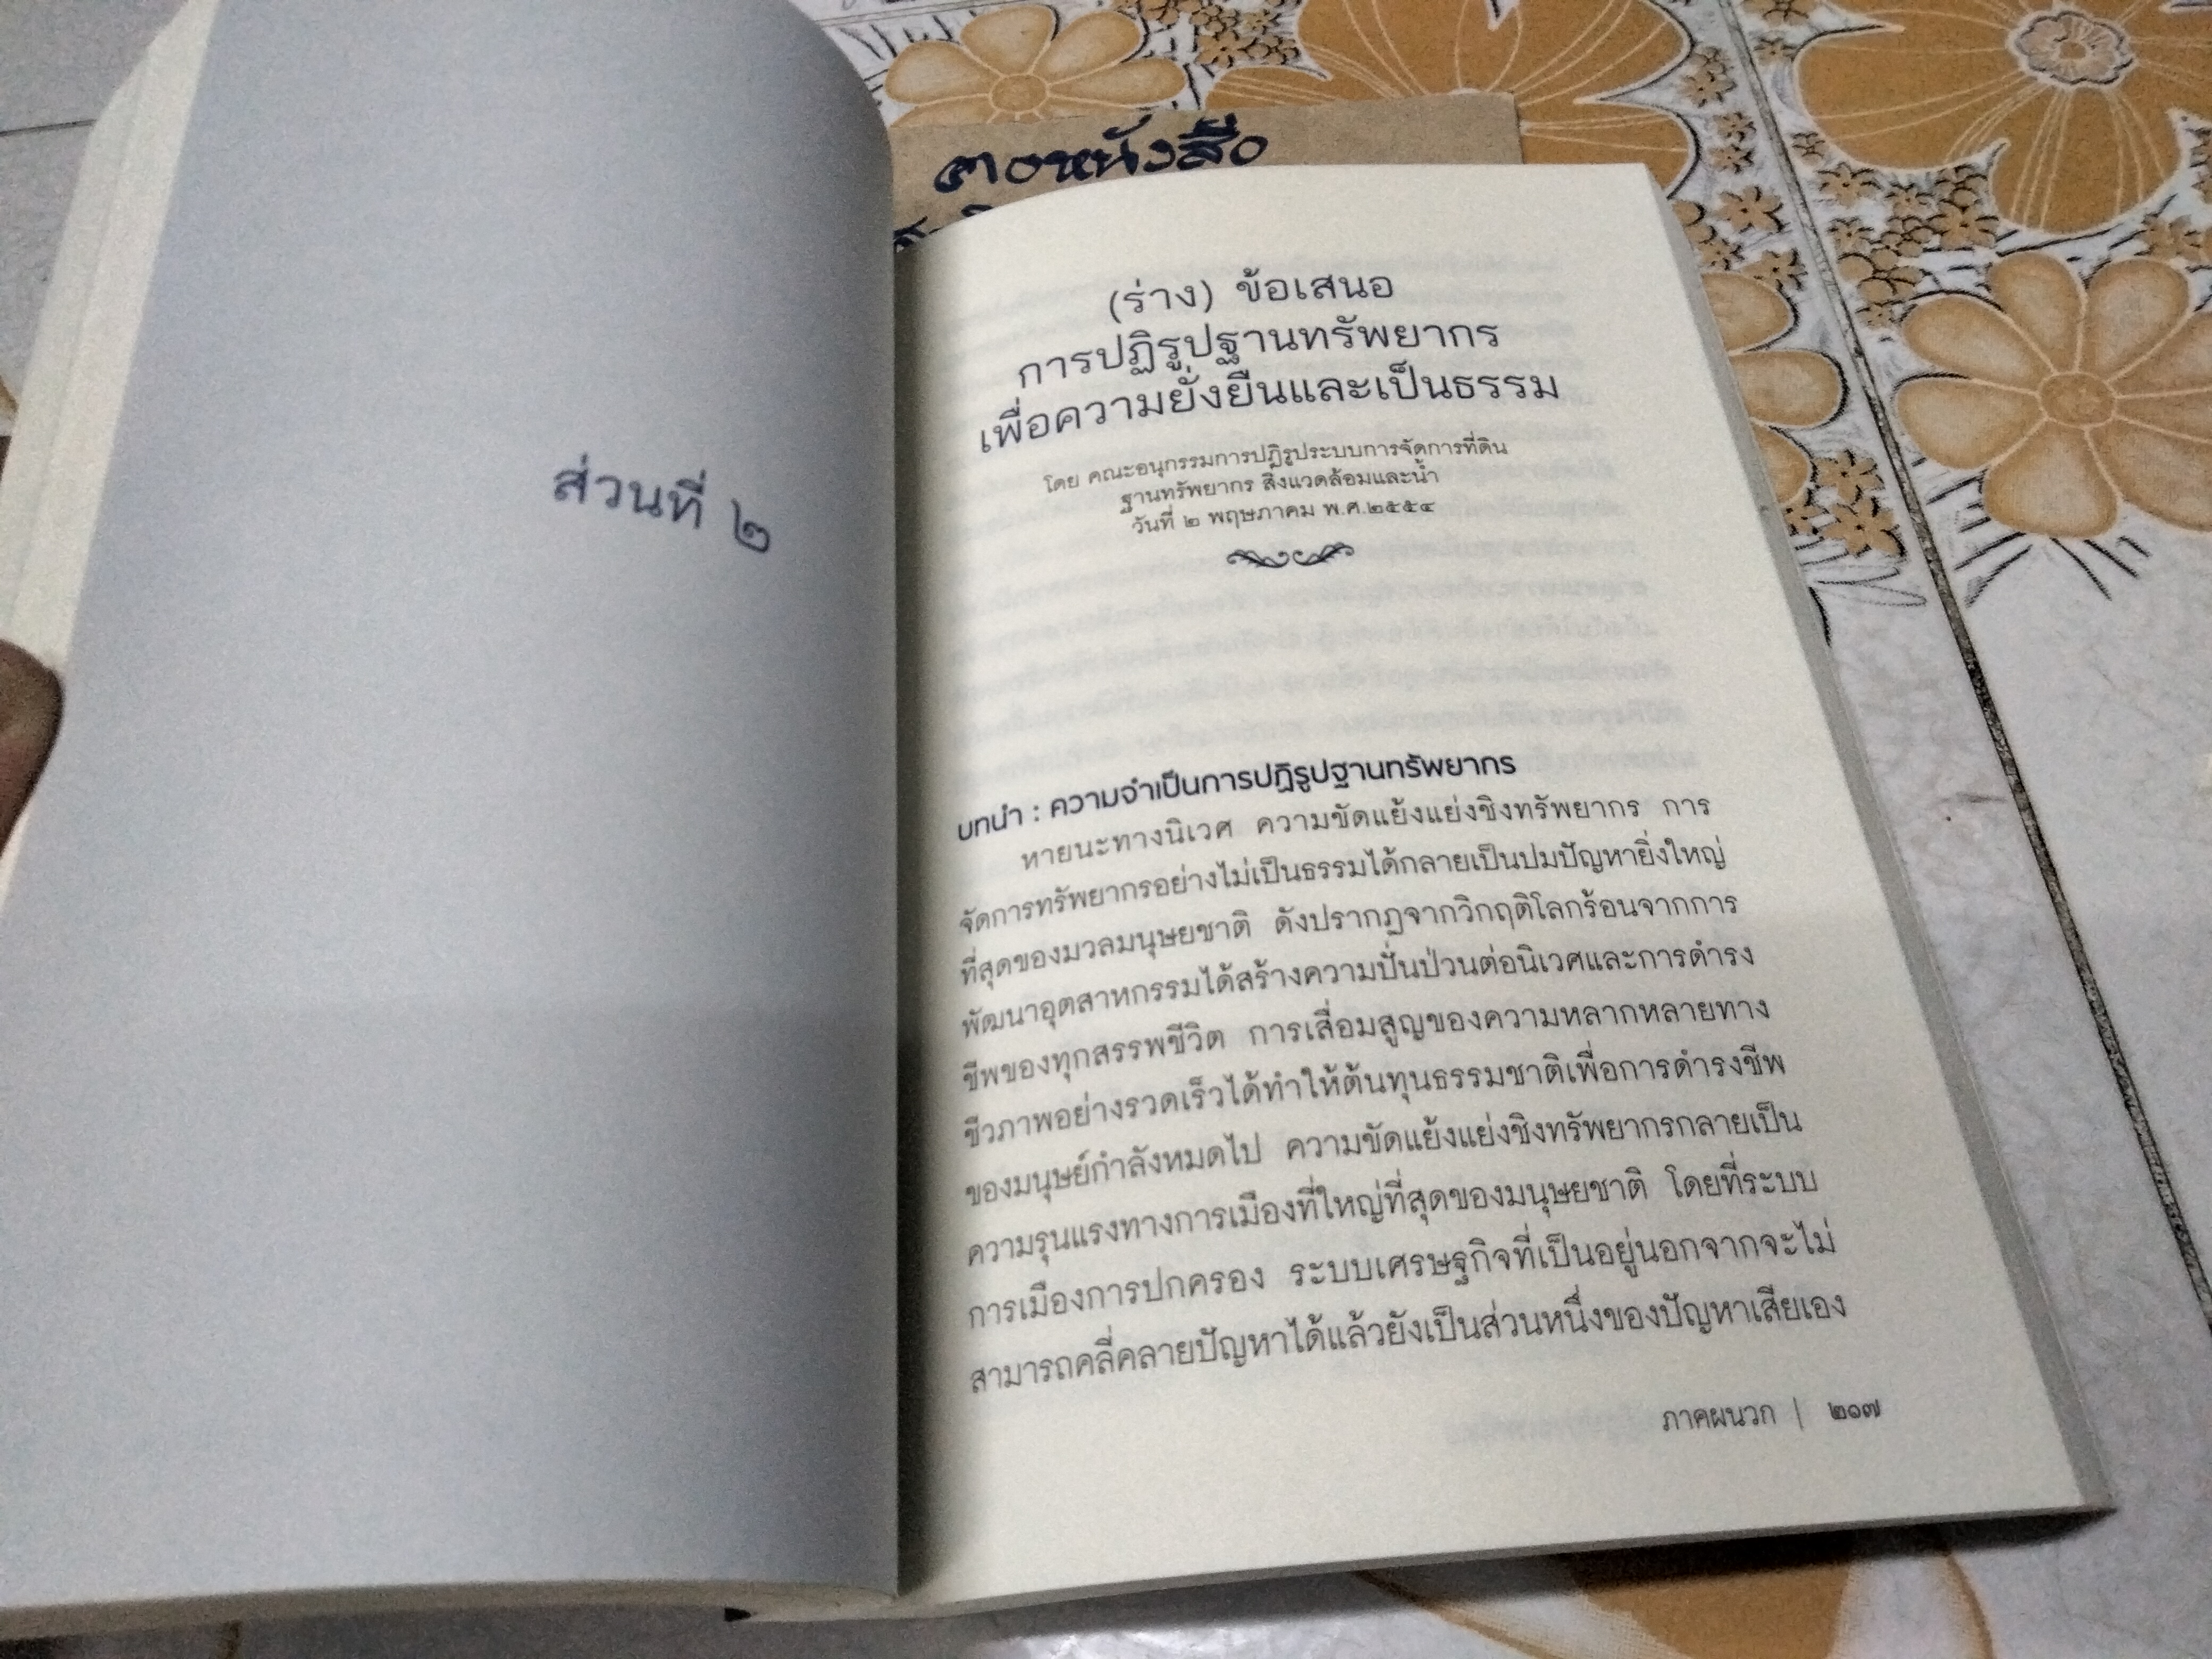 ส่วนที่ ๒
(ร่าง) ข้อเสนอ
การปฏิรูปฐานทรัพยากร
เพื่อความยั่งยืนและเป็นธรรม
โดย คณะอนุกรรมการปฏิรูประบบการจัดการที่ดิน
ฐานทรัพยากร สิ่งแวดล้อมและน้ำ
วันที่ ๒ พฤษภาคม พ.ศ.๒๕๕๔
บทนำ : ความจำเป็นการปฏิรูปฐานทรัพยากร
หายนะทางนิเวศ ความขัดแย้งแย่งชิงทรัพยากร การ
จัดการทรัพยากรอย่างไม่เป็นธรรมได้กลายเป็นปมปัญหายิ่งใหญ่
ที่สุดของมวลมนุษยชาติ ดังปรากฏจากวิกฤติโลกร้อนจากการ
พัฒนาอุตสาหกรรมได้สร้างความปั่นป่วนต่อนิเวศและการดำรง
ชีพของทุกสรรพชีวิต การเสื่อมสูญของความหลากหลายทาง
ชีวภาพอย่างรวดเร็วได้ทำให้ต้นทุนธรรมชาติเพื่อการดำรงชีพ
ของมนุษย์กำลังหมดไป ความขัดแย้งแย่งชิงทรัพยากรกลายเป็น
ความรุนแรงทางการเมืองที่ใหญ่ที่สุดของมนุษยชาติ โดยที่ระบบ
การเมืองการปกครอง ระบบเศรษฐกิจที่เป็นอยู่นอกจากจะไม่
สามารถคลี่คลายปัญหาได้แล้วยังเป็นส่วนหนึ่งของปัญหาเสียเอง
ภาคผนวก | ๒๑๗